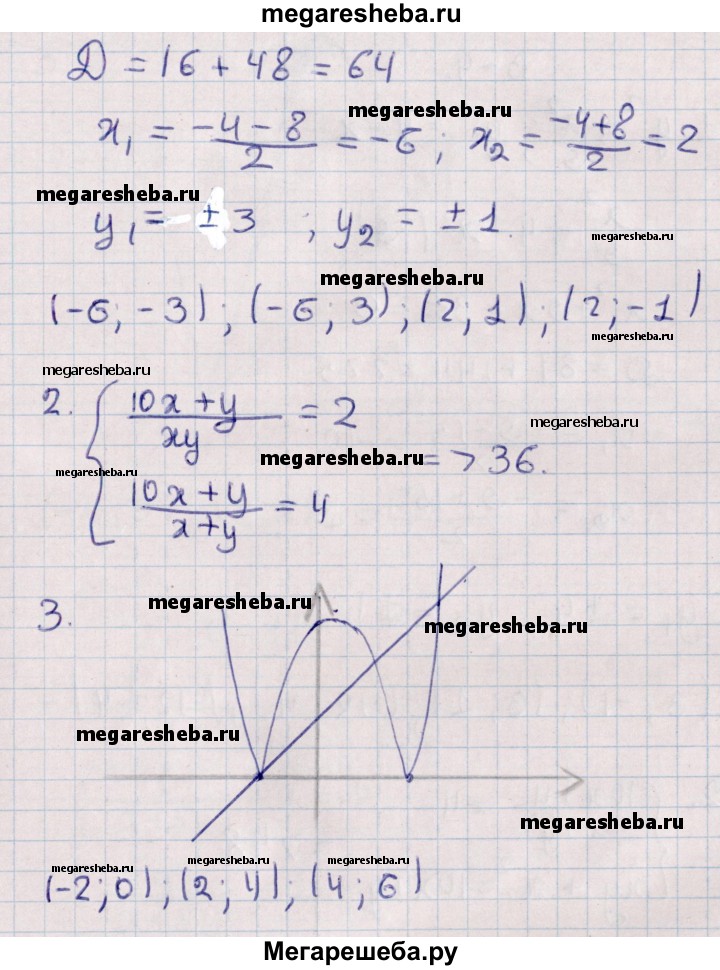 megaresheba.ru
D = 16 + 48 = 64
megaresheba.ru
x₁ = (-4-8)/2 = -6; x₂ = (-4+8)/2 = 2
megaresheba.ru
y₁ = ±3 ; y₂ = ±1.
megaresheba.ru
megaresheba.ru
(-6; -3); (-6; 3); (2; 1); (2; -1)
megaresheba.ru
megaresheba.ru
2. { (10x+y)/(xy) = 2
megaresheba.ru
megaresheba.ru
megaresheba.ru
=> 36.
(10x+y)/(x+y) = 4
3.
megaresheba.ru
megaresheba.ru
megaresheba.ru
megaresheba.ru
megaresheba.ru
megaresheba.ru
megaresheba.ru
(-2; 0); (2; 4); (4; 6)
Мегарешеба.ру